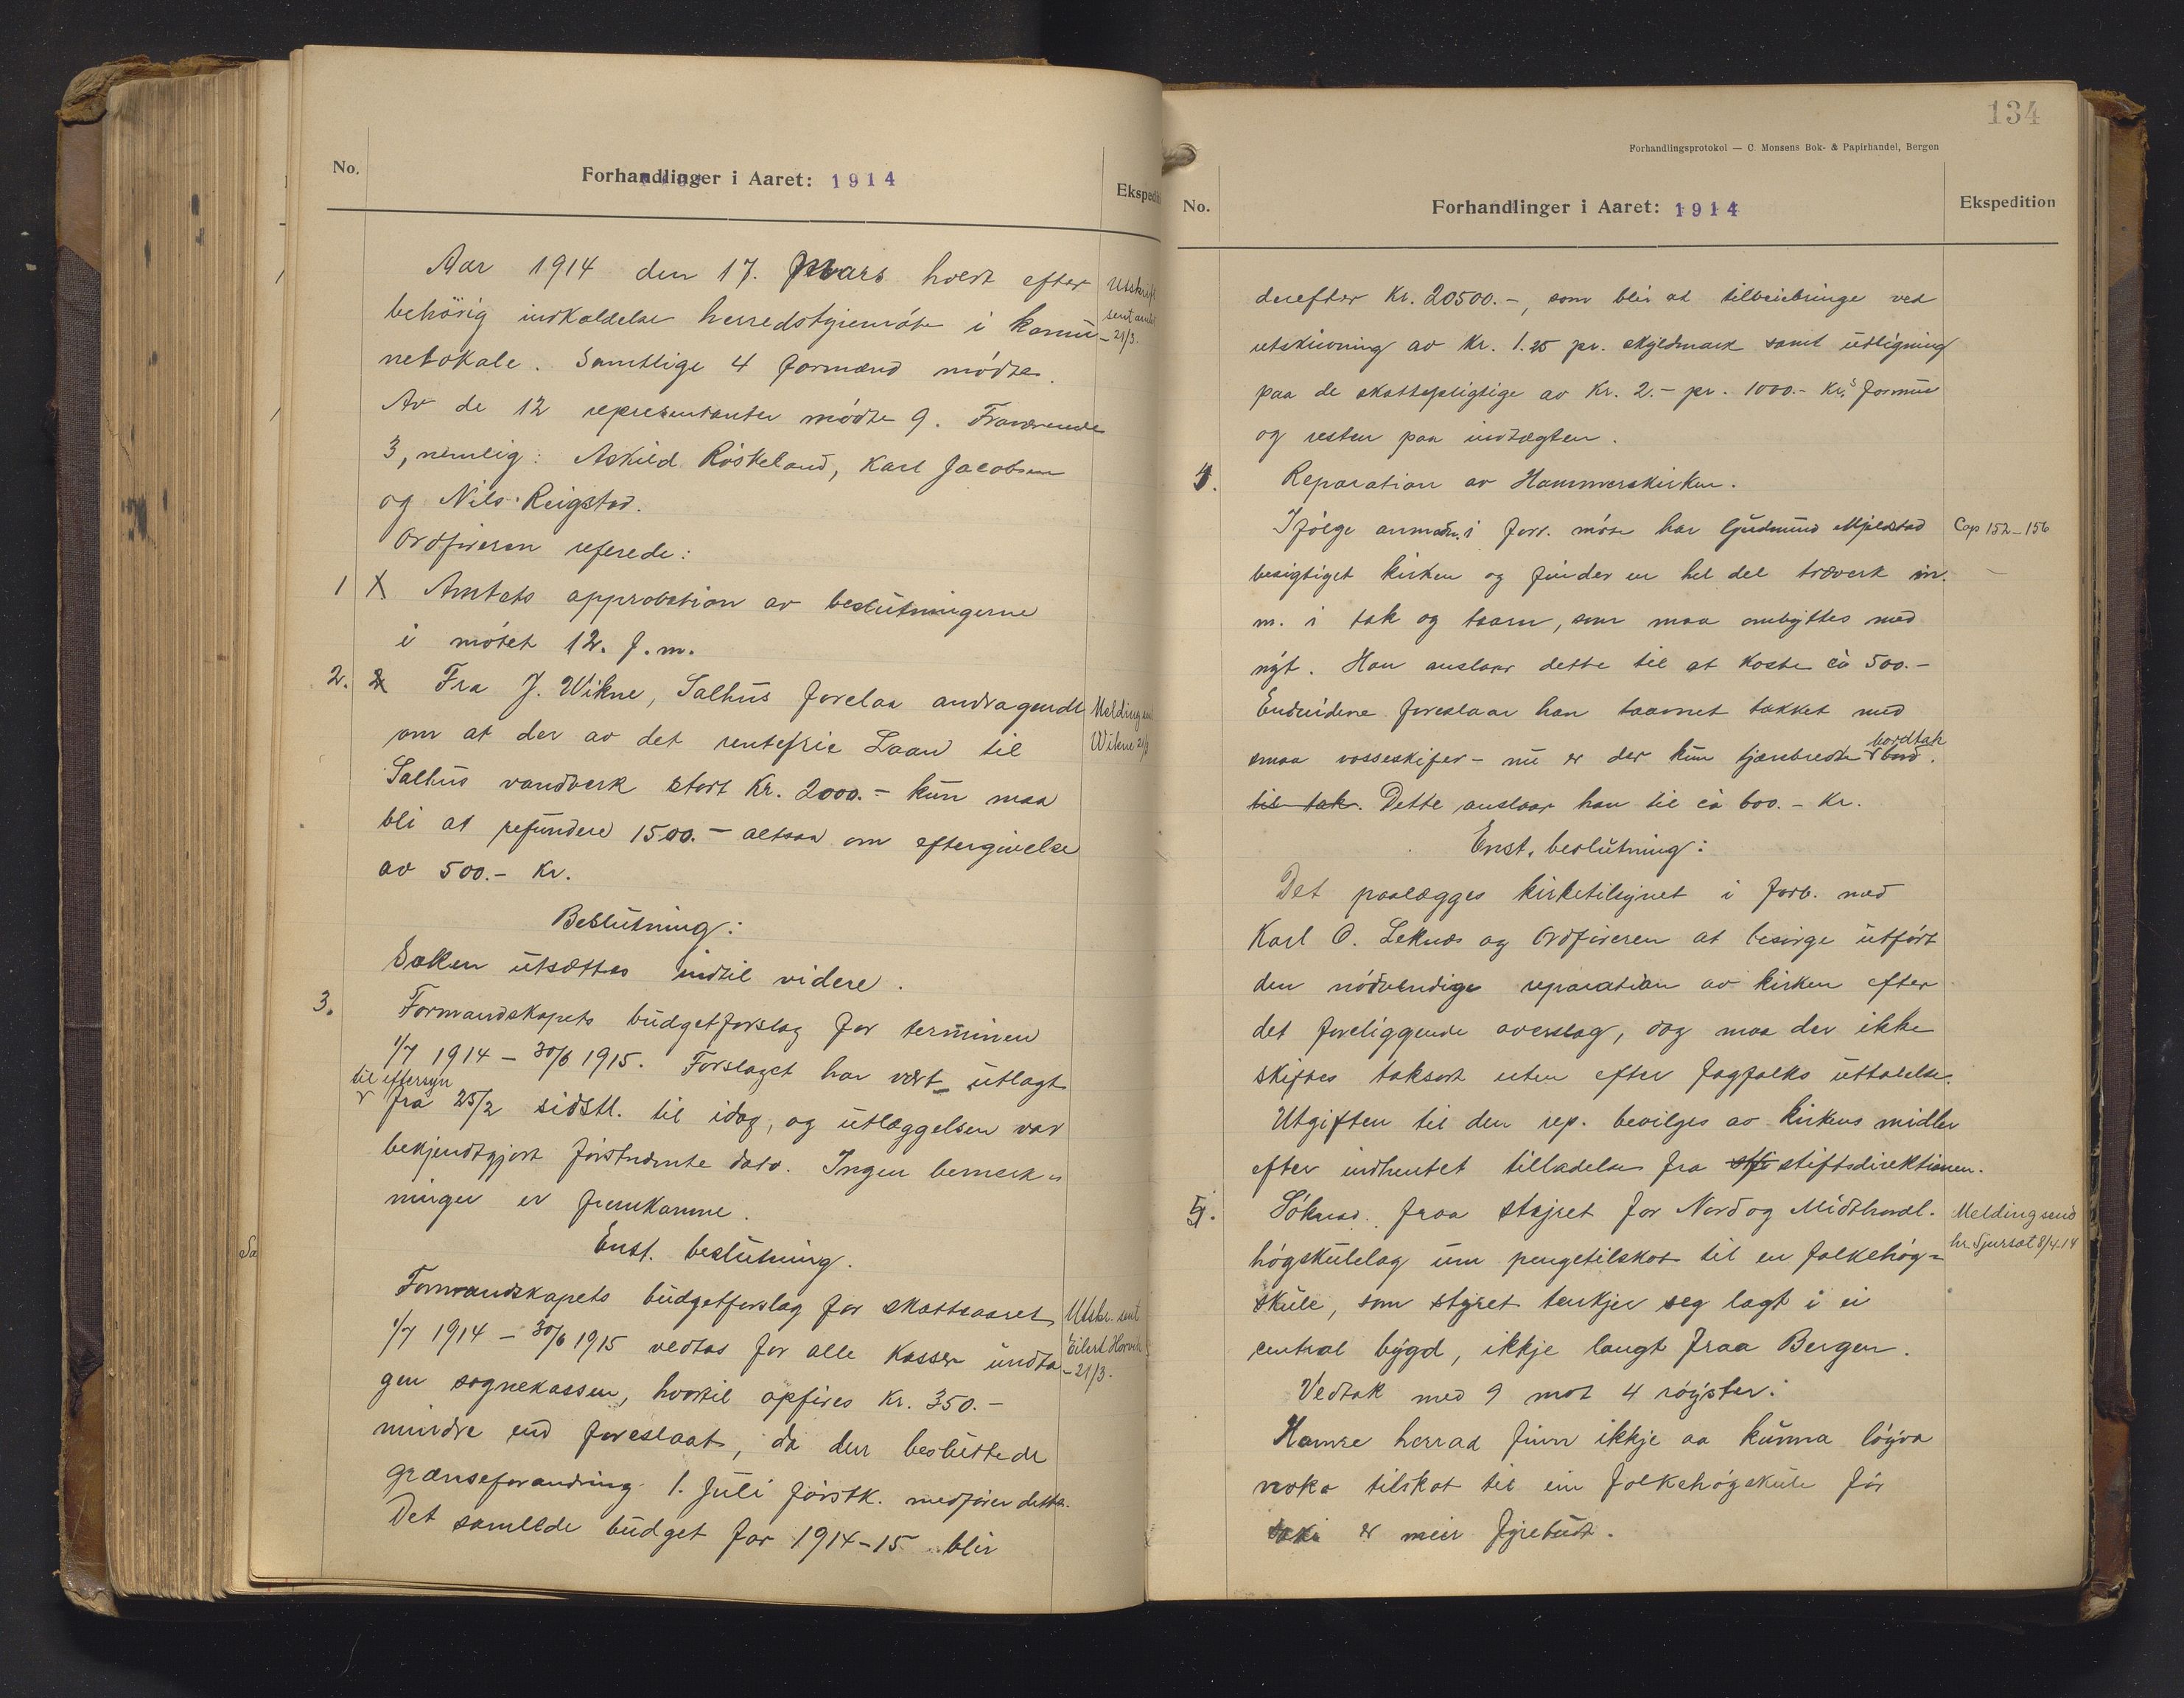 No.
Forhandlinger i Aaret: 1914
Ekspedit
Aar 1914 den 17. Mars holdt efter
behörig indkaldelse herredstyremöte i komu-
nelokale. Samtlige 4 formænd mödte.
Av de 12 representanter mödte 9. Fraværende
3, nemlig: Askild Röskeland, Karl Jacobsen
og Nils Reigstad.
Ordföreren referede:
1 Amtets approbation av beslutningerne
i mötet 12. f.m.
2. Fra J. Wikne, Salhus forelaa andragende
om at der av det rentefrie Laan til
Salhus vandverk stort Kr. 2000.- kun maa
bli at refundere 1500.- altsaa om eftergivelse
av 500.- Kr.
Beslutning:
Saken utsættes indtil videre.
3. Formandskapets budgetforslag for terminen
1/7 1914 - 30/6 1915. Forslaget har vært utlagt
til eftersyn
fra 25/2 sidstl. til idag, og utlæggelsen var
bekjendtgjort förstnævnte dato. Ingen bemerk-
ninger er fremkomne.
Enst. beslutning.
Formandskapets budgetforslag for skatteaaret
1/7 1914 - 30/6 1915 vedtas for alle kasser undta-
gen sognekassen, hvortil opföres Kr. 350.-
mindre end foreslaat, da den besluttede
grænseforandring 1. Juli förstk. medförer dette.
Det samlede budget for 1914-15 blir
Utskrift
sent amtet
21/3.
Melding send
Wikne 21/3
Utskr. sent
Eilert Horvik
21/3.
134
Forhandlingsprotokol — C. Monsens Bok- & Papirhandel, Bergen
No.
Forhandlinger i Aaret: 1914
Ekspedition
derefter Kr. 20500.-, som blir at tilveiebringe ved
utskrivning av Kr. 1.25 pr. skyldmark samt utligning
paa de skattepligtige av Kr. 2.- pr. 1000.- Kr.s formue
og resten paa indtægten.
4. Reparation av Hammerskirken.
Ifölge anmodn. i forr. möte har Gudmund Mjeldstad
besigtiget kirken og finder en hel del træverk m.
m. i tak og taarn, som maa ombyttes med
nyt. Han anslaar dette til at koste ca 500.-
Endvidere foreslaar han taarnet tækket med
smaa vosseskifer - nu er der kun tjærebredte bord.
bordtak
til tak. Dette anslaar han til ca 600.- Kr.
Enst. beslutning:
Det paalægges kirketilsynet i forb. med
Karl O. Leknes og Ordföreren at besörge utfört
den nödvendige reparation av kirken efter
det foreliggende overslag, dog maa der ikke
skiftes taksort uten efter fagfolks uttalelse.
Utgiften til den rep. bevilges av kirkens midler
efter indhentet tilladelse fra stiftsdirektionen.
5. Söknad fraa styret for Nord og Midthordl.
högskulelag um pengetilskot til en folkehög-
skule, som styret tenkjer seg lagt i ei
central bygd, ikkje langt fraa Bergen.
Vedtak med 9 mot 4 röyster:
Hamre herrad finn ikkje aa kunna löyva
noko tilskot til ein folkehögskule för
saki er meir fyrebudt.
Cap 152-156
Melding send
hr. Tjursæt 8/4.14